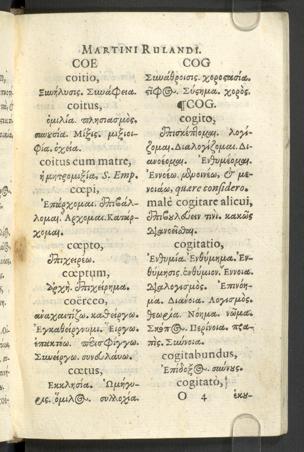 MARTINI RULANDI.
COE
coitio,
Ξυνήλυσις. Συνάφεια.
coitus,
ὁμιλία. πλησιασμός.
συνουσία. Μίξις. μιξιοι-
φία. ὀχεία.
coitus cum matre,
ἡ μητρομιξία, S. Emp.
cœpi,
Ἐπάρχομαι. ἐπιβάλ-
λομαι. Ἄρχομαι. Κατάρ-
χομαι.
cœpto,
ἐπιχειρέω.
cœptum,
ἀρχή. ἐπιχείρημα.
coërceo,
ἀναχαιτίζω. καθείργω.
Ἐγκαθείργνυμι. Εἴργω.
Συνείργω. συνελαύνω.
cœtus,
Ἐκκλησία. Ὁμήγυ-
ρις. ὅμιλος. συλλοχία.
COG
Συνάθροισις. χοροστασία.
στῖφος. Σύστημα. χορός.
¶COG.
cogito,
ἐπισκέπτομαι. λογί-
ζομαι. Διαλογίζομαι. Δι-
ανοέομαι. Ἐνθυμέομαι.
Ἐννοέω. φροντίζω, & με-
quære considero.
malè cogitare alicui,
ἐπιβουλεύειν τινί. κακῶς
διανοεῖσθαι.
cogitatio,
Ἐνθυμία. Ἐνθύμημα. Ἐν-
θύμησις. ἐνθύμιον. Ἔννοια.
Διαλογισμός. Ἐπινόη-
μα. Διάνοια. Λογισμός.
θεωρία. Νόημα. νῶμα.
Σύννοια.
cogitabundus,
σύννους.
cogitatò,
O 4